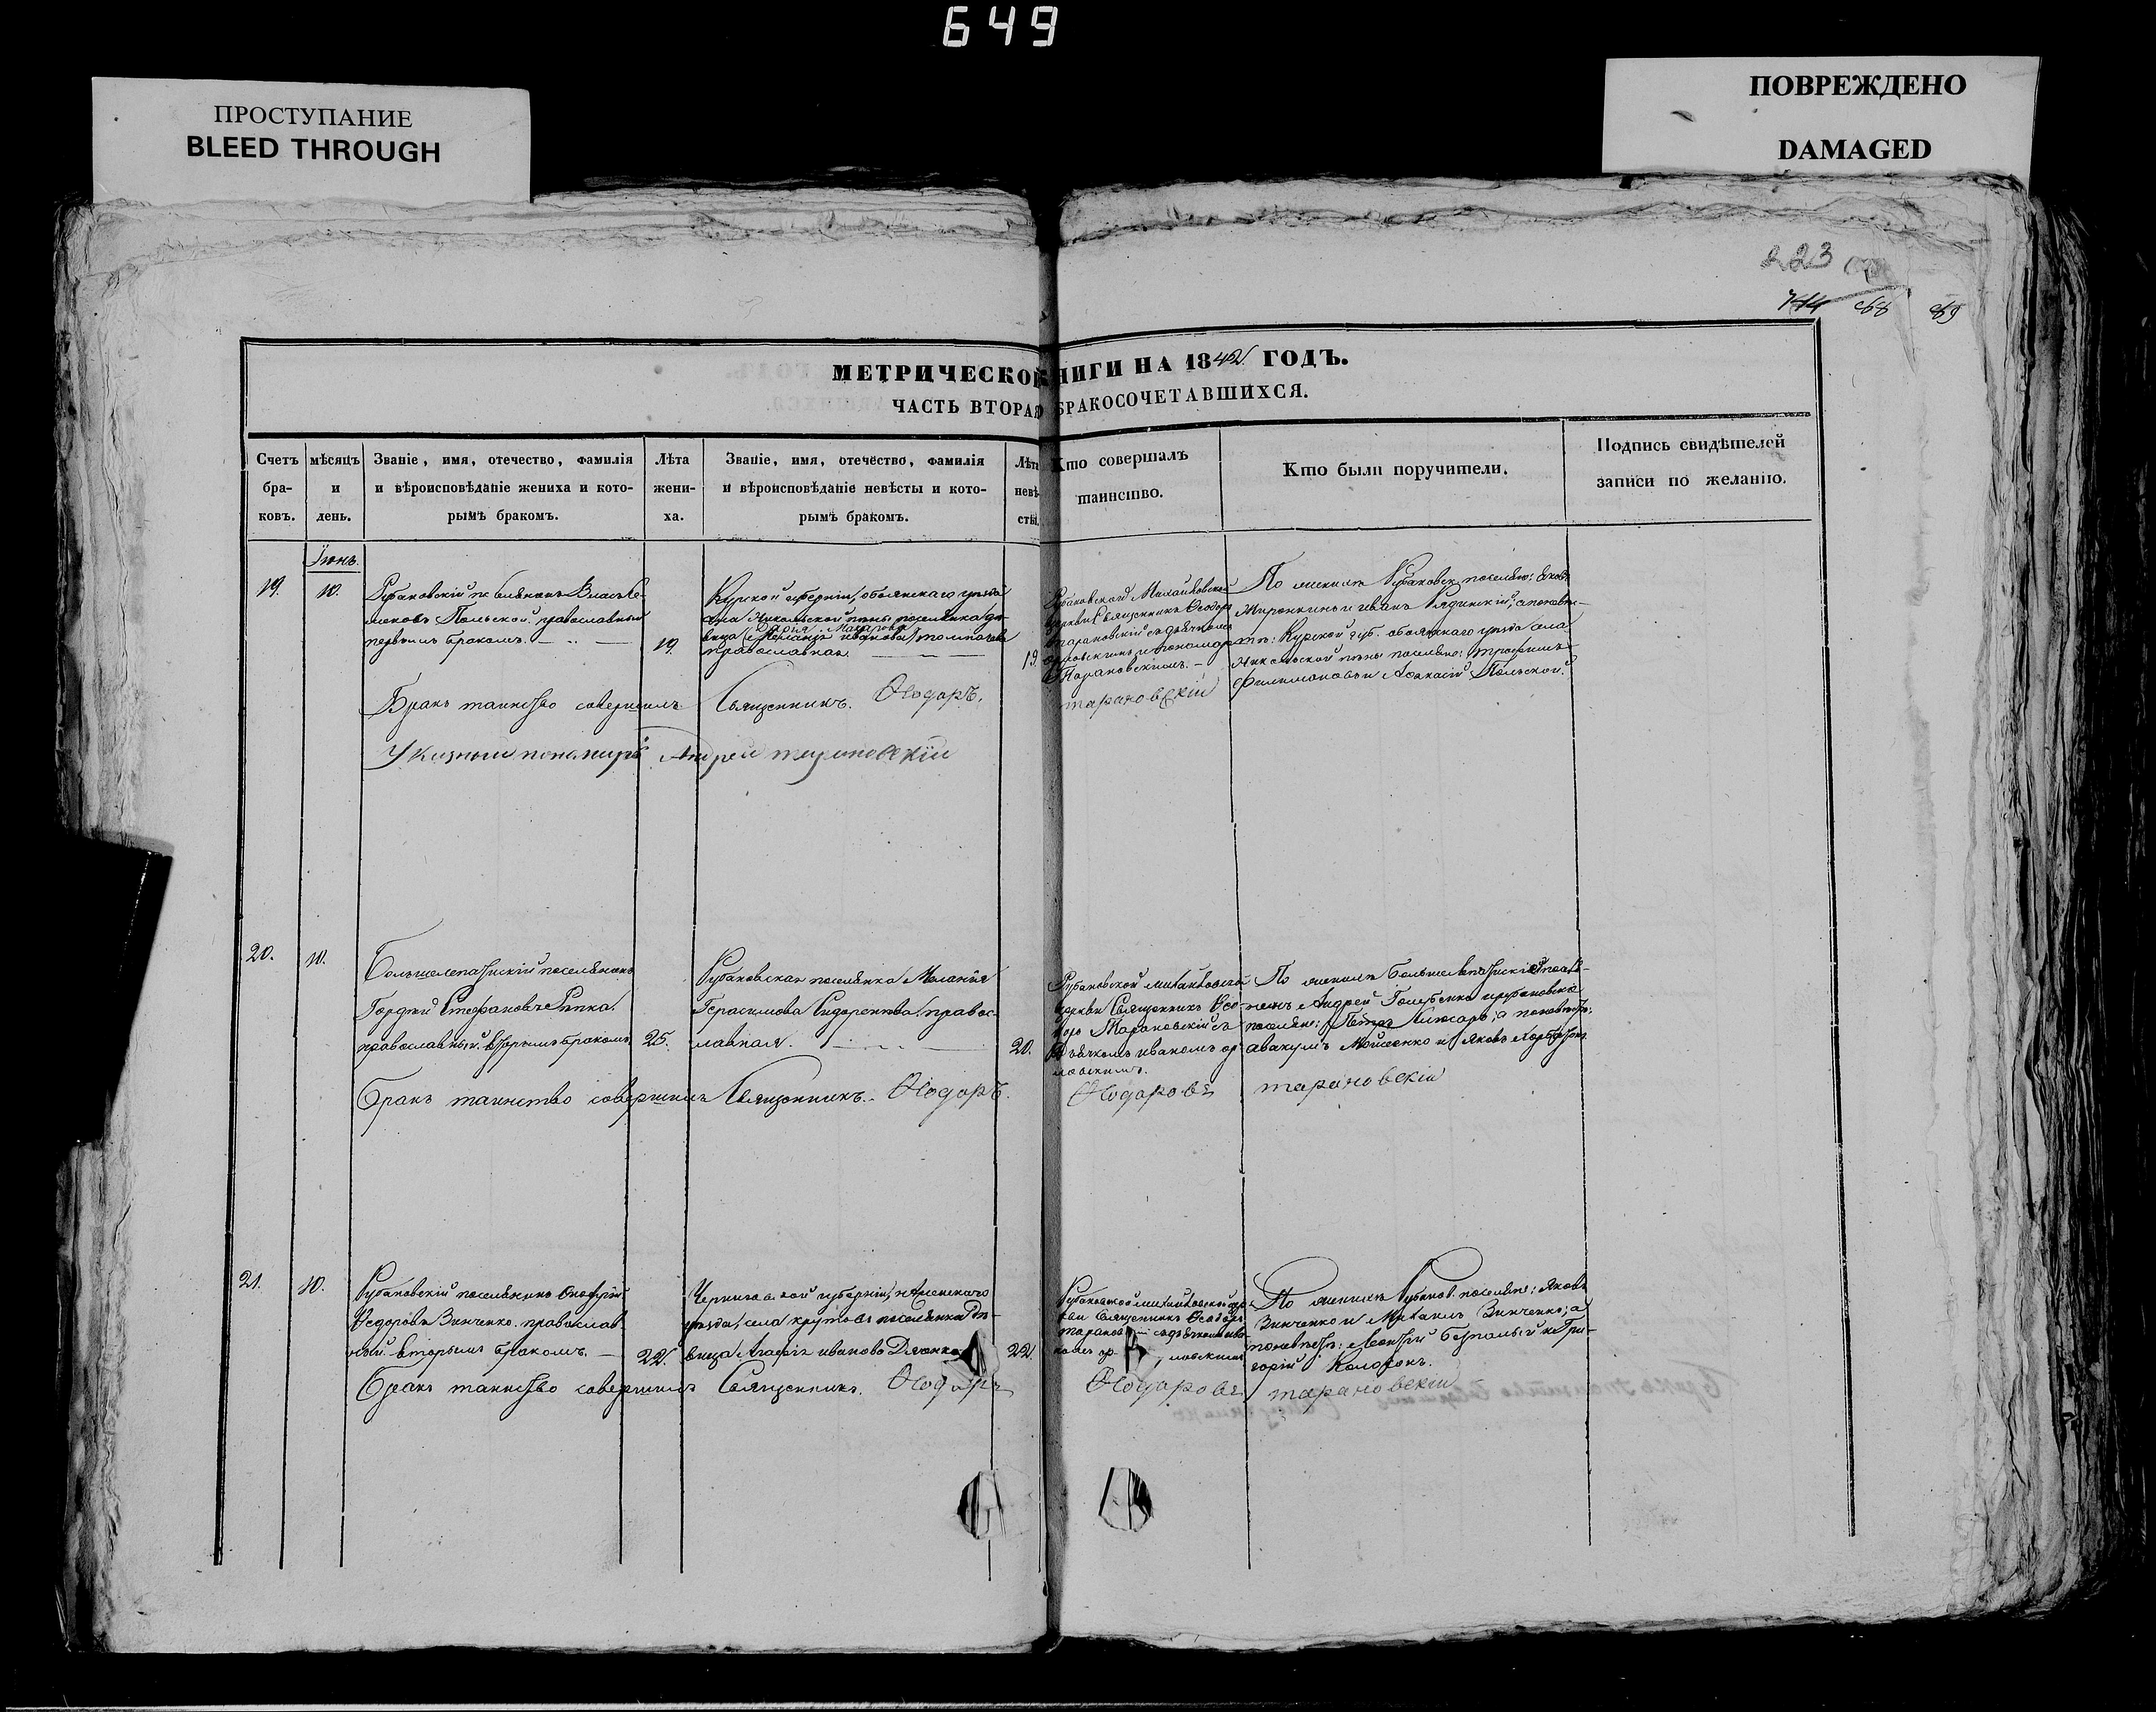 649
ПРОСТУПАНИЕ
BLEED THROUGH
ПОВРЕЖДЕНО
DAMAGED
223
744 68 89
МЕТРИЧЕСКОЙ КНИГИ НА 1842 ГОДЪ.
ЧАСТЬ ВТОРАЯ БРАКОСОЧЕТАВШИХСЯ.
Счетъ бра-ковъ.
мѣсяцъ и день.
Званіе, имя, отечество, фамилія
и вѣроисповѣданіе жениха и кото-
рымъ бракомъ.
Лѣта жени-ха.
Званіе, имя, отечество, фамилія
и вѣроисповѣданіе невѣсты и кото-
рымъ бракомъ.
Лѣта невѣ-сты.
Кто совершалъ
таинство.
Кто были поручители.
Подпись свидѣтелей
записи по желанію.
Іюнь.
19.
10.
Рубановскій поселянинъ Власъ Се-
меновъ Польской православный
первымъ бракомъ.
19.
Курской губерніи, обоянскаго уѣзда
села Никольской поселянка дѣ-
Дарія Макарова
вица (Меланія иванова)
православная.
19.
Рубановской Михайловской
церкви Священникъ Ѳеодоръ
Тарановскій съ дьячкомъ
и пономаремъ
Тарановскимъ.
По женихѣ Рубановск. поселяне: Яковъ
Миронкинъ и иванъ а по невѣ-
стѣ: Курской губ. обоянскаго уѣзда села
Никольской поселяне: Трофимъ
Филимоновъ и Польской.
Бракъ таинство совершилъ Священникъ. Ѳеодоръ. тарановскій
Указный пономарь Андрей тарановскій
20.
10.
Большелепатискій поселянинъ
Гордѣй Стефановъ Рипка.
православный. вторымъ бракомъ.
25.
Рубановская поселянка Меланія
Герасимова Сидоренкова. правос-
лавная.
20.
Рубановской михайловской
церкви Священникъ Ѳео-
доръ Тарановскій съ
дьячкомъ иваномъ ор-
ловскимъ.
По женихѣ Большелепатискій посе-
лянинъ Андрей Голубенко и рубановскіе
поселяне: Петръ Слюсарь; а по невѣстѣ:
авакумъ Моисеенко и Яковъ
Бракъ таинство совершилъ Священникъ. Ѳеодоръ. Ѳеодоровъ тарановскій
21.
10.
Рубановскій поселянинъ Онофрій
Ѳедоровъ Зинченко. православ-
ный. вторымъ бракомъ.
22.
Черниговской губерніи,
уѣзда, села крутовъ поселянка дѣ-
вица Агафія иванова
22.
Рубановской михайловской цер-
кви Священникъ Ѳеодоръ
таранов съ дьячкомъ ива-
номъ ор ловскимъ
По женихѣ Рубанов. поселяне: Яковъ
Зинченко и Михаилъ Зинченко; а
по невѣстѣ: Леонтій Безпалый и Гри-
горій
Бракъ таинство совершилъ Священникъ. Ѳеодоръ Ѳеодоровъ тарановскій